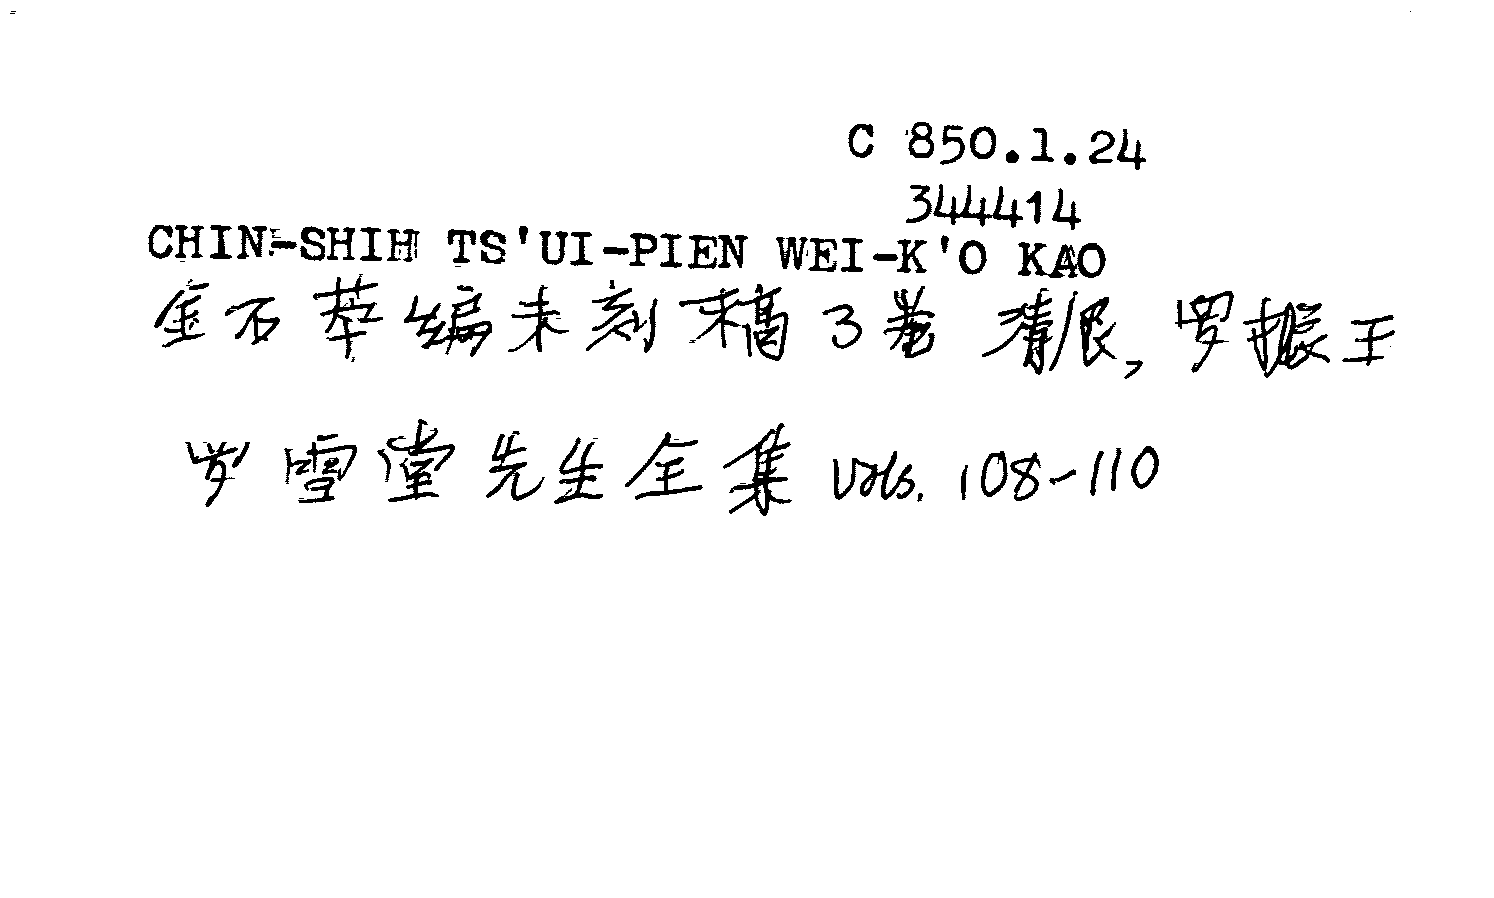 C 850.1.24
344414
CHIN-SHIH TS'UI-PIEN WEI-K'O KAO
金石萃编未刻稿 3卷 清, 罗振玉
罗雪堂先生全集 vols. 108-110